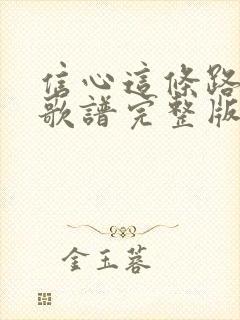 信心這條路
歌譜完整版
金玉蓉